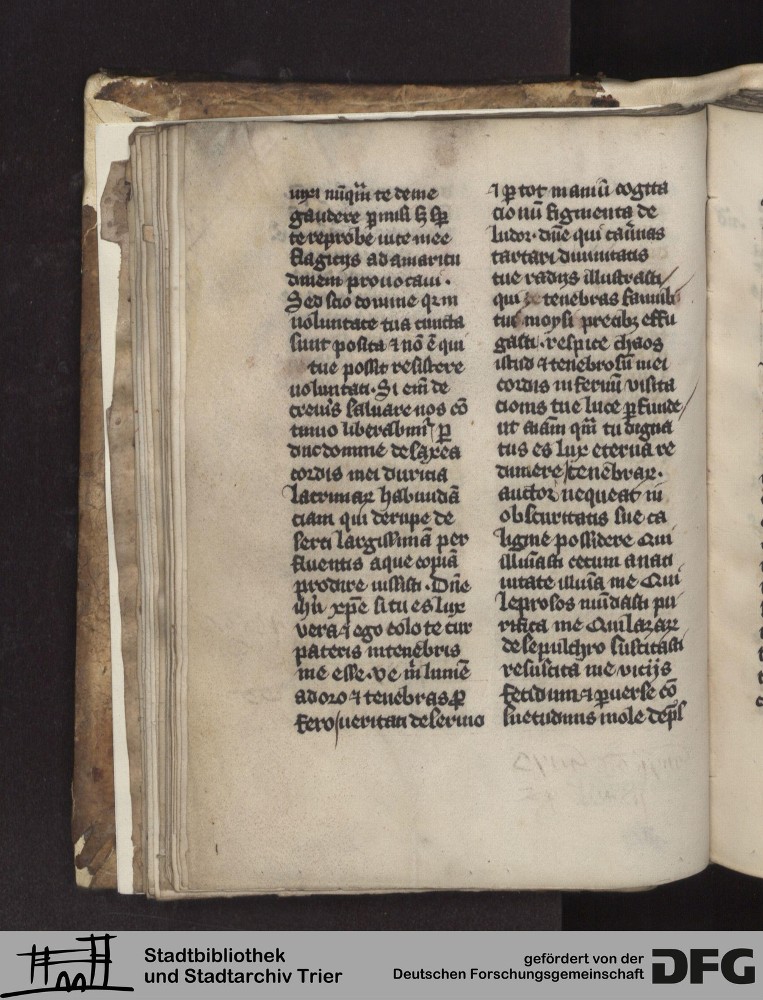 uixi nūq̄m te de me
gaudere ꝑmisi
te reprobe uite mee
flagicijs ad amaritu
dinem prouocaui ·
Sed scio domine
uoluntate tua cuncta
sunt posita ⁊ nō ē qui
tue possit resistere
uoluntati · Si em̄ de
creuis saluare nos cō
tinuo liberabimᷣ
duc domine de saxea
cordis mei duricia
lacrimaꝝ habundā
ciam qui de rupe de
serti largissimā per
fluentis aque copiā
prodire iussisti · Dn̄e
ih̄u xp̄e si tu es lux
vera ⁊ ego colo te cur
pateris in tenebris
me esse · ve m̄ lumē
adoro ⁊ tenebras
fero ueritati deseruio
⁊ ꝑ tot maniū cogita
cionū figmenta de
ludor · dn̄e qui
tartari diuinitatis
tue radijs illustrasti
qui tenebras
tui moysi precibꝫ effu
gasti · respice chaos
istud ⁊ tenebrosū mei
cordis infernū visita
cionis tue luce ꝑfunde
ut tu digna
tus es lux eterna re
dimere tenebraꝝ ·
auctor nequeat in
obscuritatis sue ca
ligine possidere Qui
illūasti cecum a nati
uitate illūia me Qui
leprosos mūdasti pu
rifica me Qui lazaꝝ
de sepulchro suscitasti
resuscita me vicijs
fetidum ⁊ ꝑuerse cō
suetudinis mole dep̄s
Stadtbibliothek
und Stadtarchiv Trier
gefördert von der
Deutschen Forschungsgemeinschaft
DFG